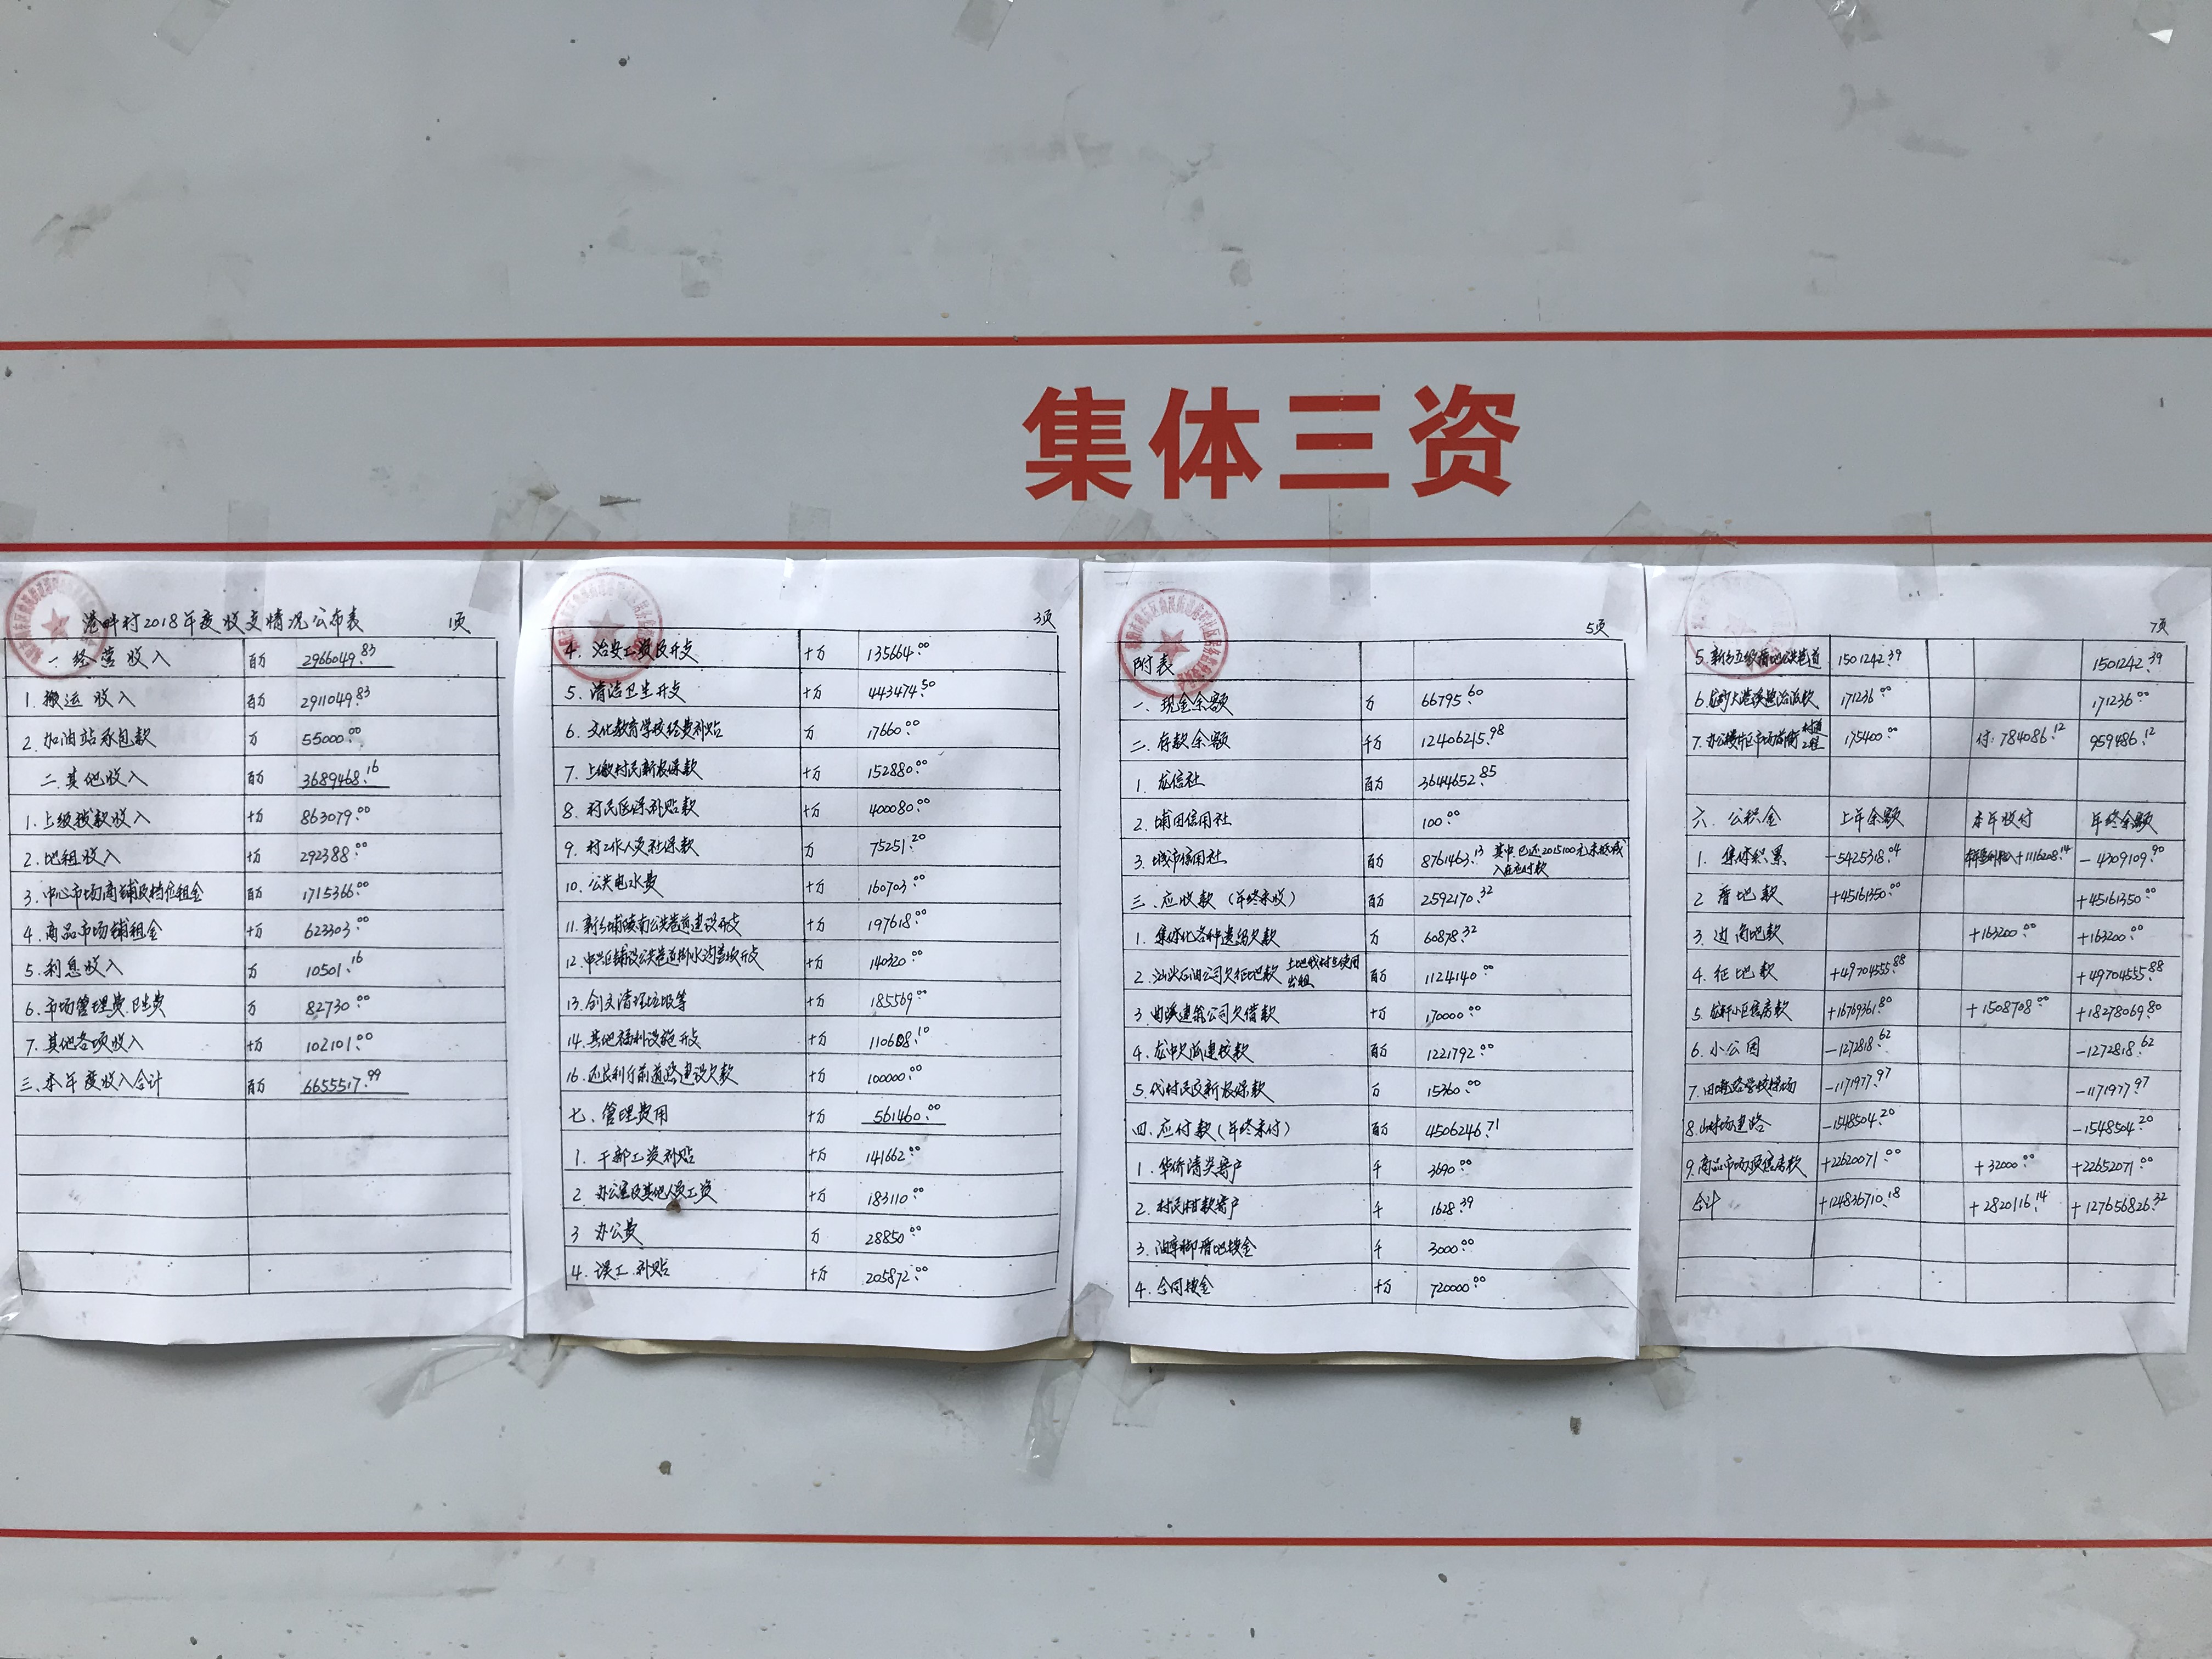 集体三资
港畔村2018年度收支情况公布表 1页
一.经营收入 百万 2966049.83
1.搬运收入 百万 2911049.83
2.加油站承包款 万 55000.00
二.其他收入 百万 3689468.16
1.上级拨款收入 十万 863079.00
2.地租收入 十万 292388.00
3.中心市场商铺及档位租金 百万 1715366.00
4.商品市场铺租金 十万 623303.00
5.利息收入 万 10501.16
6.市场管理费.卫生费 万 82730.00
7.其他各项收入 十万 102101.00
三.本年度收入合计 百万 6655517.99
3页
4.治安工资及开支 十万 135664.00
5.清洁卫生开支 十万 443474.50
6.文化教育学校经费补贴 万 17660.00
7.上缴村民新农保款 十万 152880.00
8.村民医保补贴款 十万 400080.00
9.村工作人员社保款 万 75251.20
10.公共电水费 十万 160703.00
11.新乡埔陇南公共巷道建设开支 十万 197618.00
12.中兴区铺设公共巷道排水沟等项开支 十万 140320.00
13.创文清理垃圾等 十万 185569.00
14.其他福利设施开支 十万 110608.10
16.还长利厅前道路建设欠款 十万 100000.00
七.管理费用 十万 561460.00
1.干部工资补贴 十万 141662.00
2 办公室及其他人员工资 十万 183110.00
3 办公费 万 28850.00
4.误工补贴 十万 205872.00
5页
附表
一.现金余额 万 66795.60
二.存款余额 千万 12406215.98
1.龙信社 百万 3644652.85
2.埔田信用社 100.00
3.城市信用社 百万 8761463.13 其中已还2015100元未抵减
入在应付款
三.应收款(年终未收) 百万 2592170.32
1.集体化各种遗留欠款 万 60878.32
2.汕头石油公司欠征地款 百万 1124140.00
3.曲溪建筑公司欠借款 十万 170000.00
4.龙中欠征建校款 百万 1221792.00
5.代村民交新农保款 万 15360.00
四.应付款(年终未付) 百万 4506246.71
1.华侨清类寄户 千 3690.00
2.村民柑款寄户 千 1628.39
3.油车脚厝地按金 千 3000.00
4.合同按金 十万 720000.00
7页
5.新乡五级厝地公共巷道 1501242.39 1501242.39
171236.00 171236.00
175400.00 付:784086.12 959486.12
六.公积金 上年余额 本年收付 年终余额
1.集体积累 -5425318.04 +1116208.14 -4309109.90
2 厝地款 +45161350.00 +45161350.00
3.边角地款 +163200.00 +163200.00
4.征地款 +49704555.88 +49704555.88
5.龙畔小区售房款 +16769361.80 +1508708.00 +18278069.80
6.小公园 -1272818.62 -1272818.62
7. -1171977.97 -1171977.97
8. -1548504.20 -1548504.20
9.商品市场预售房款 +22620071.00 +32000.00 +22652071.00
合计 +124836710.18 +2820116.14 +127656826.32